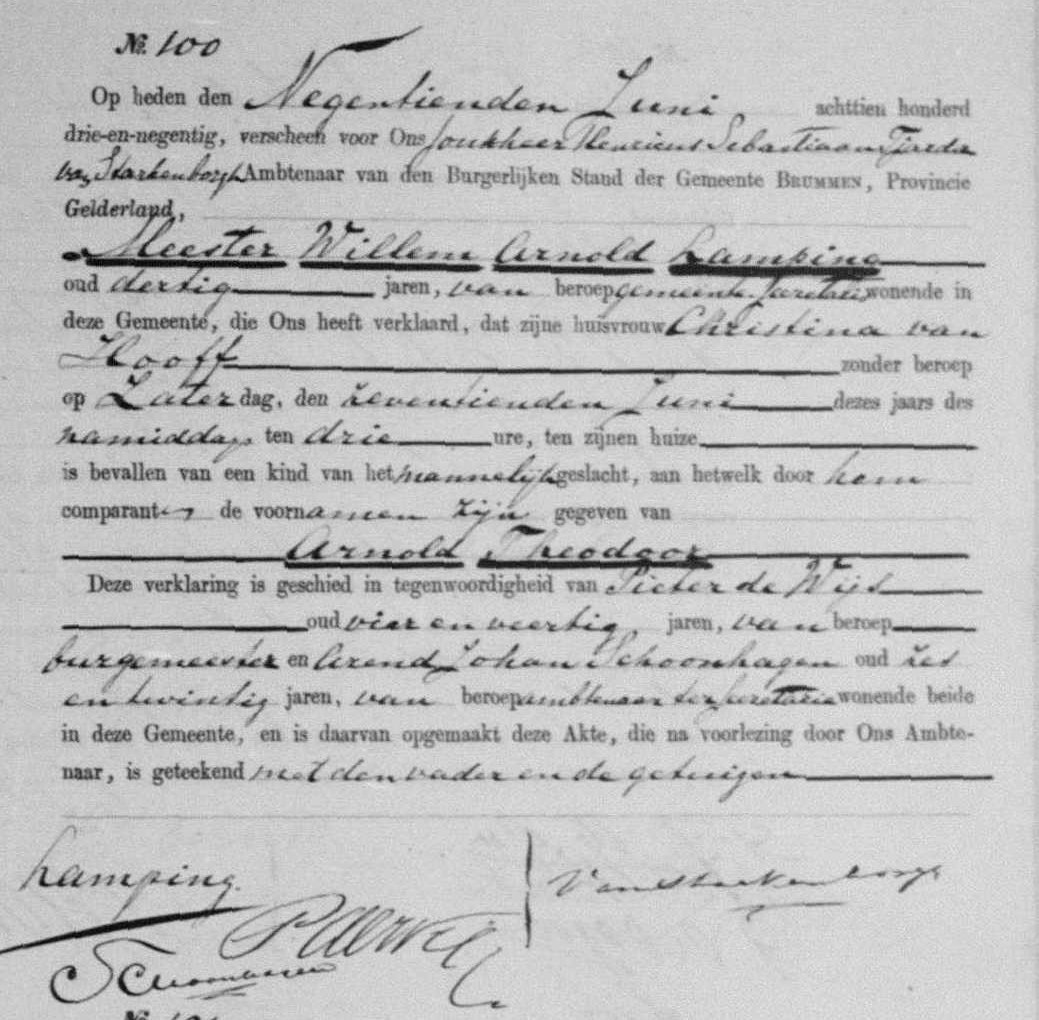 No. 100
Op heden den Negentienden Juni achttien honderd
drie-en-negentig, verscheen voor Ons Jonkheer Henricus Sebastiaan Tjarda
van Starkenborgh Ambtenaar van den Burgerlijken Stand der Gemeente BRUMMEN, Provincie
Gelderland,
Meester Willem Arnold Lamping
oud dertig jaren, van beroep gemeente secretaris wonende in
deze Gemeente, die Ons heeft verklaard, dat zijne huisvrouw Christina van
Hooff zonder beroep
op Zaterdag, den zeventienden Juni dezes jaars des
namiddags ten drie ure, ten zijnen huize
is bevallen van een kind van het mannelijk geslacht, aan hetwelk door hem
comparant de voornamen zijn gegeven van
Arnold Theodoor
Deze verklaring is geschied in tegenwoordigheid van Pieter de Wijs
oud vier en veertig jaren, van beroep
burgemeester en Arend Johan Schoonhagen oud zes
en twintig jaren, van beroep ambtenaar ter secretarie wonende beide
in deze Gemeente, en is daarvan opgemaakt deze Akte, die na voorlezing door Ons Ambte-
naar, is geteekend met den vader en de getuigen
Lamping.
Van Starkenborgh
P de Wijs
Schoonhagen